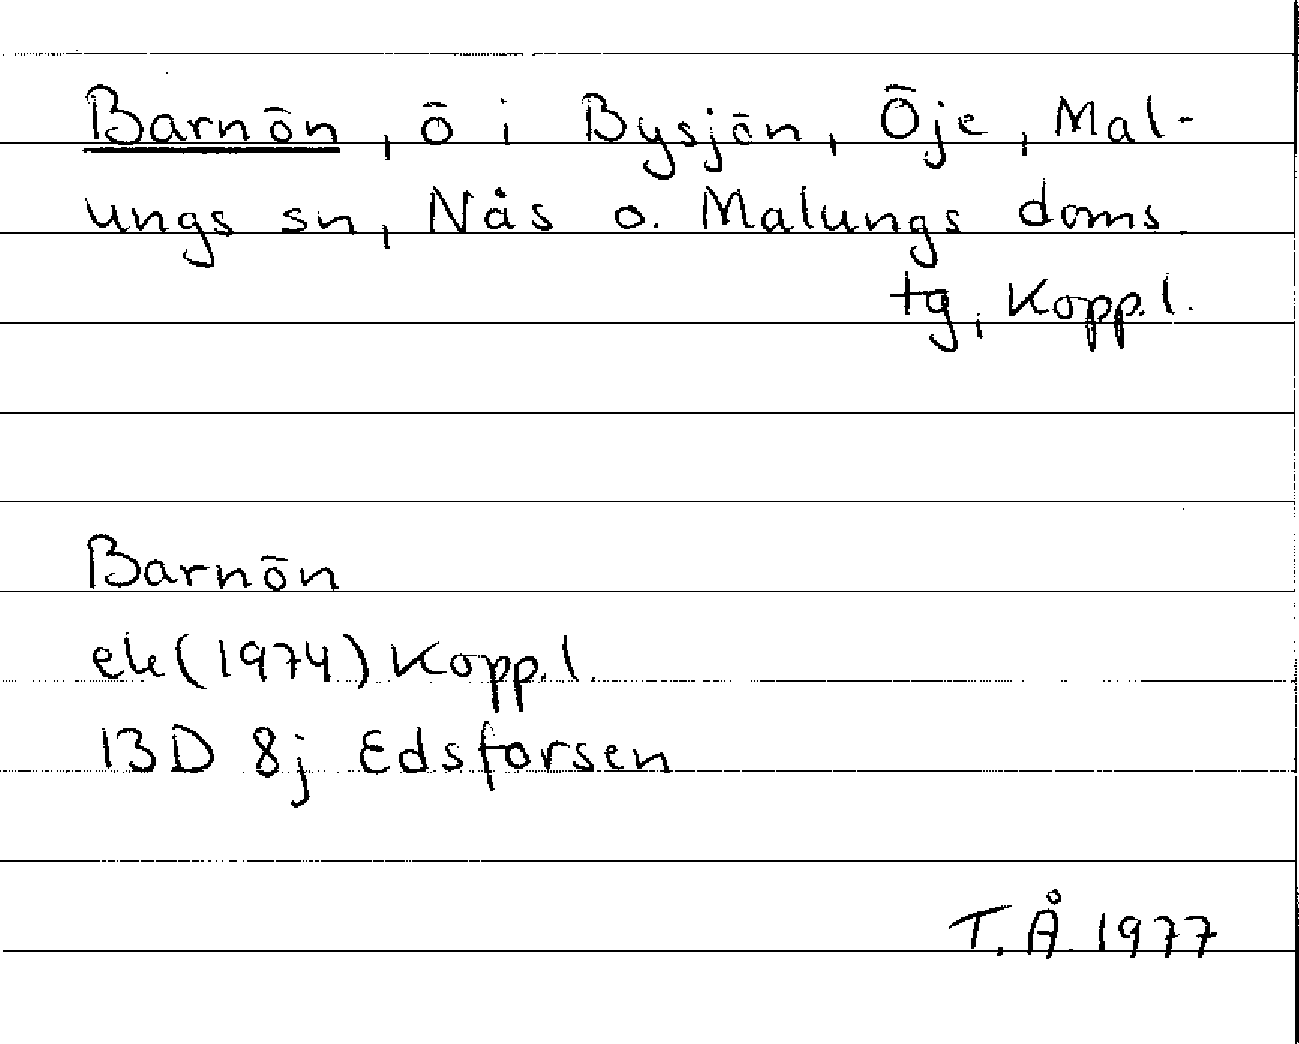 Barnön, ö i Bysjön, Öje, Mal-
ungs sn, Nås o. Malungs doms
tg, Kopp.l.
Barnön
ek(1974) Kopp.l.
13D 8j Edsforsen
T.Å. 1977